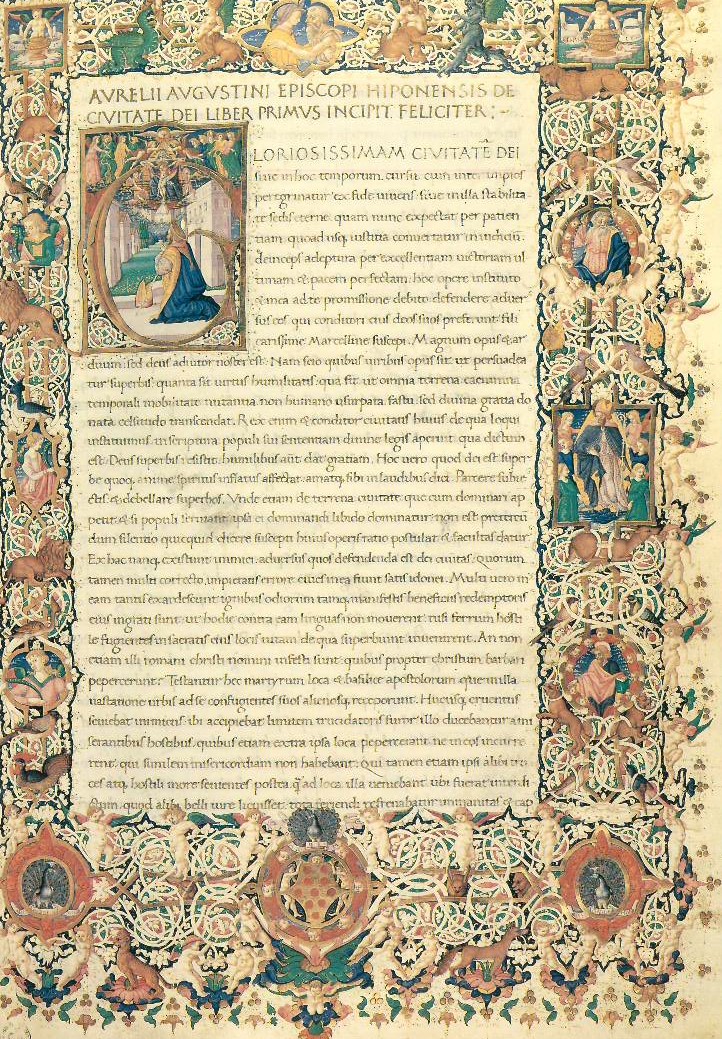 AVRELII AVGVSTINI EPISCOPI HIPONENSIS DE
CIVITATE DEI LIBER PRIMVS INCIPIT FELICITER :~
G
LORIOSISSIMAM CIVITATĒ DEI
siue in hoc temporum cursu cum inter impios
peregrinatur ex fide uiuens: siue in illa stabilita
te sedis eterne quam nunc expectat per patien
tiam: quoad usq; iustitia conuertatur in iudiciū:
deinceps adeptura per excellentiam uictoriam ul
timam & pacem perfectam: hoc opere instituto
& mea ad te promissione debito defendere aduer
sus eos qui conditori eius deos suos preferunt: fili
carissime Marcelline suscepi. Magnum opus & ar
duum: sed deus adiutor noster est. Nam scio quibus uiribus opus sit ut persuadea
tur superbis quanta sit uirtus humilitatis: qua fit ut omnia terrena cacumina
temporali mobilitate nutantia non humano usurpata fastu: sed diuina gratia do
nata celsitudo transcendat. Rex enim & conditor ciuitatis huius de qua loqui
instituimus in scriptura populi sui sententiam diuine legis aperuit qua dictum
est: Deus superbis resistit: humilibus aūt dat gratiam. Hoc uero quod dei est super
be quoq; anime spiritus inflatus affectat: amatq; sibi in laudibus dici. Parcere subie
ctis & debellare superbos. Vnde etiam de terrena ciuitate que cum dominari ap
petit & si populi seruiant ipsa ei dominandi libido dominatur: non est pretereū
dum silentio quicquid dicere suscepti huius operis ratio postulat & facultas datur.
Ex hac nanq; existunt inimici aduersus quos defendenda est dei ciuitas: quorum
tamen multi correcto impietatis errore ciues in ea fiunt satis idonei. Multi uero in
eam tantis exardescunt ignibus odiorum tamq; manifestis beneficiis redemptoris
eius ingrati sunt: ut hodie contra eam linguas non mouerent: nisi ferrum hosti
le fugientes in sacratis eius locis uitam de qua superbiunt inuenirent. An non
etiam illi romani christi nomini infesti sunt: quibus propter christum barbari
pepercerunt? Testantur hec martyrum loca & basilice apostolorum que in illa
uastatione urbis ad se confugientes suos alienosq; receperunt. Hucusq; cruentus
seuiebat inimicus: ibi accipiebat limitem trucidatoris furor: illo ducebantur a mi
serantibus hostibus quibus etiam extra ipsa loca pepercerant: ne in eos incurre
rent: qui similem misericordiam non habebant. Qui tamen etiam ipsi alibi tru
ces atq; hostili more seuientes postea q̄ ad loca illa ueniebant ubi fuerat interdi
ctum: quod alibi belli iure licuisset: tota feriendi refrenabatur immanitas & cap